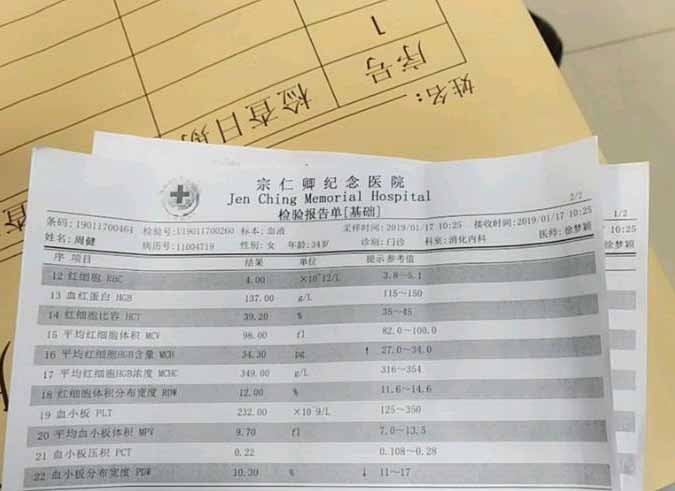 姓名:
序号
检查日期
1
宗仁卿纪念医院
Jen Ching Memorial Hospital
检验报告单[基础]
2/2
条码:19011700464 检验号:119011700260 标本:血液 采样时间:2019/01/17 10:25 接收时间:2019/01/17 10:25
姓名:周健 病历号:11004719 性别:女 年龄:34岁 诊别:门诊 科室:消化内科 医师:徐梦颖
序 项目 结果 单位 提示 参考值
12 红细胞 RBC 4.00 ×10^12/L 3.8-5.1
13 血红蛋白 HGB 137.00 g/L 115-150
14 红细胞比容 HCT 39.20 % 35-45
15 平均红细胞体积 MCV 98.00 fl 82.0-100.0
16 平均红细胞HGB含量 MCH 34.30 pg ↑ 27.0-34.0
17 平均红细胞HGB浓度 MCHC 349.00 g/L 316-354
18 红细胞体积分布宽度 RDW 12.00 % 11.6-14.6
19 血小板 PLT 232.00 ×10^9/L 125-350
20 平均血小板体积 MPV 9.70 fl 7.0-13.5
21 血小板压积 PCT 0.22 0.108-0.28
22 血小板分布宽度 PDW 10.30 % ↓ 11-17
1/2
10:25
徐梦颖